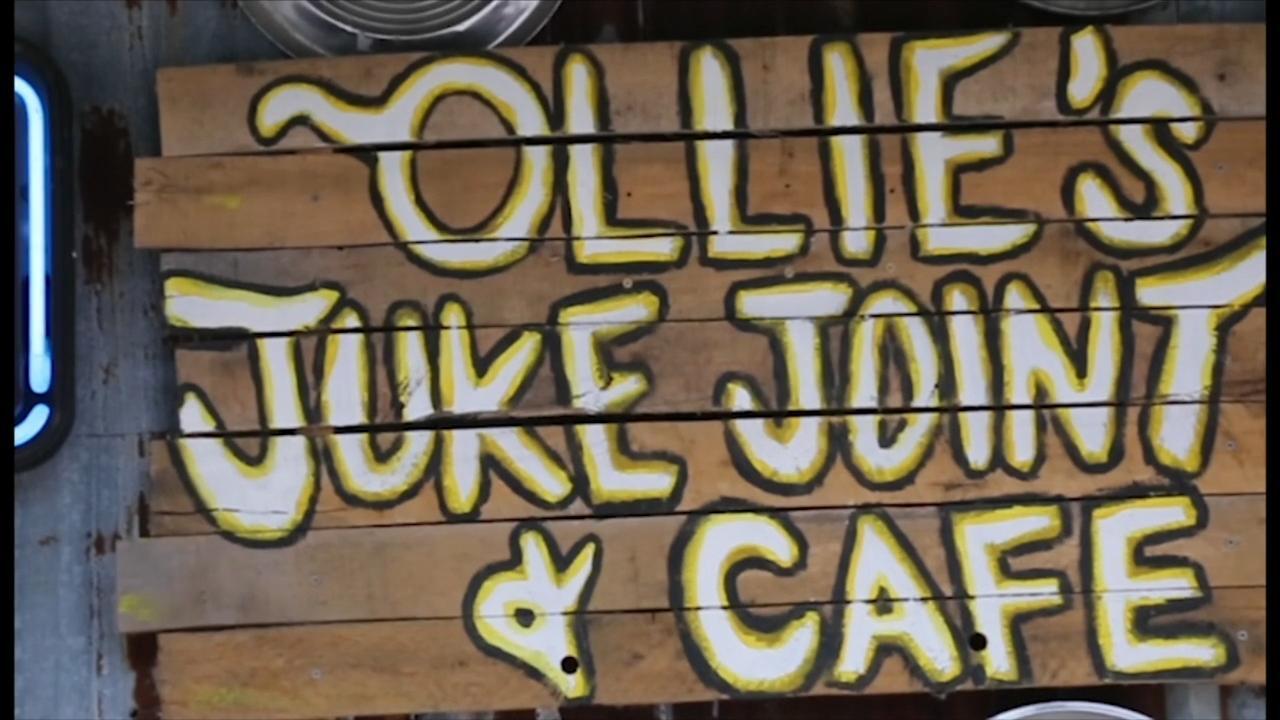 OLLIE's
JUKE JOINT
& CAFE